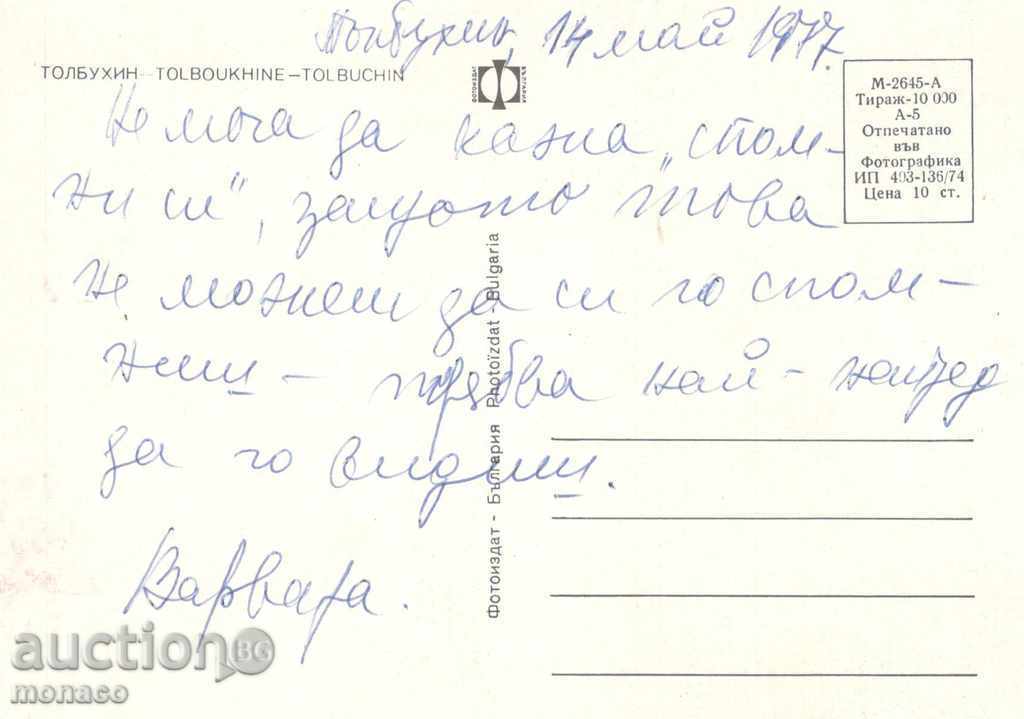 Толбухин, 14 май 1977.
ТОЛБУХИН – TOLBOUKHINE – TOLBUCHIN
ФОТОИЗДАТ
БЪЛГАРИЯ
М-2645-А
Тираж-10 000
А-5
Отпечатано
във
Фотографика
ИП 493-136/74
Цена 10 ст.
Не мога да кажа „спом-
ни си", защото това
не можеш да си го спом-
ниш – трябва най-напред
да го видиш.
Варвара.
Фотоиздат - България Photoïzdat - Bulgaria
auction BG
monaco